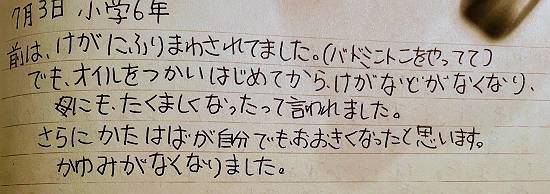 7月3日 小学6年
前は、けがにふりまわされてました。(バドミントンをやってて)
でも、オイルをつかいはじめてから、けがなどがなくなり、
母にも、たくましくなったって言われました。
さらにかたはばが自分でもおおきくなったと思います。
かゆみがなくなりました。